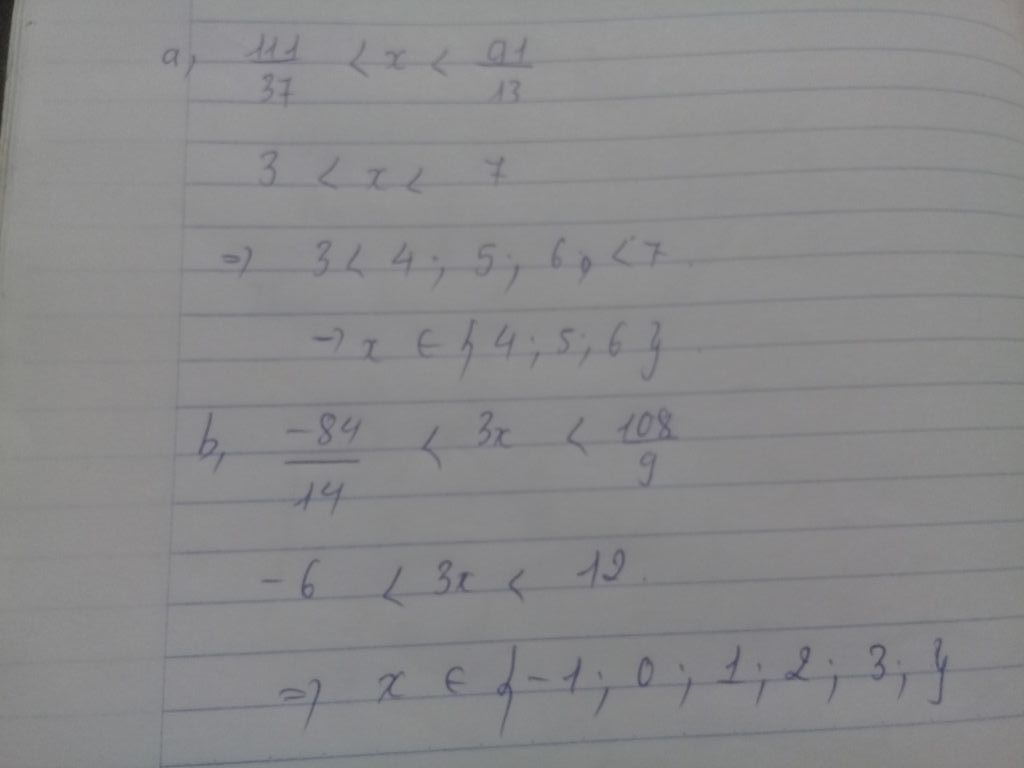 a, 111/37 < x < 91/13
3 < x < 7
=> 3 < 4 ; 5 ; 6 ; < 7 .
-> x ∈ { 4 ; 5 ; 6 } .
b, -84/14 < 3x < 108/9
-6 < 3x < 12 .
=> x ∈ { -1 ; 0 ; 1 ; 2 ; 3 ; }